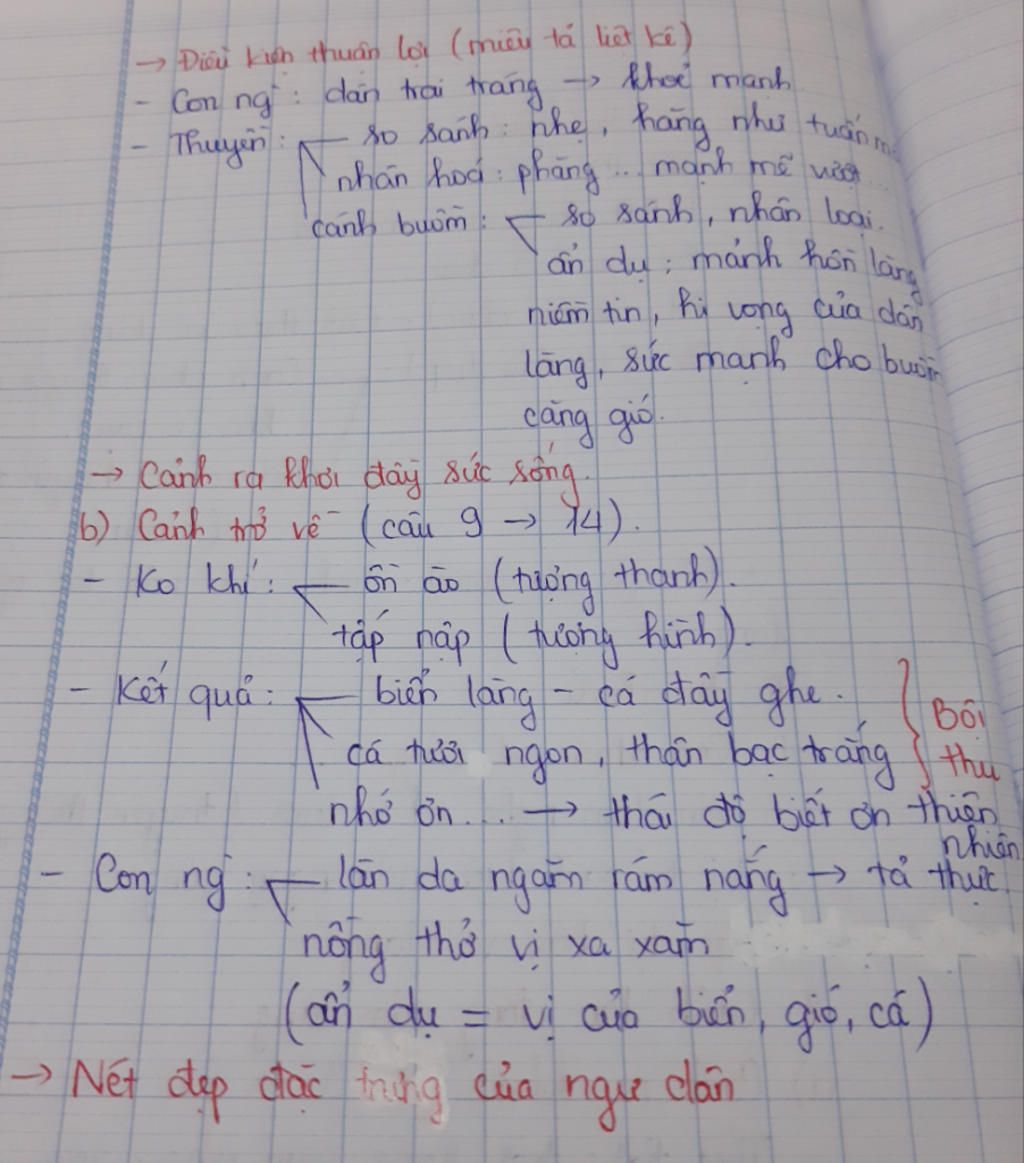 → Điều kiện thuận lợi (miêu tả liệt kê)
- Con ng`: dân trai tráng → khoẻ mạnh
- Thuyền: so sánh: nhẹ, hăng như tuấn mã
nhân hoá: phăng... mạnh mẽ vượt
cánh buồm: so sánh, nhân loại.
ẩn dụ: mảnh hồn làng
niềm tin, hi vọng của dân
làng, sức mạnh cho buồm
căng gió.
→ Cảnh ra khơi đầy sức sống.
b) Cảnh trở về (câu 9 → 14).
- Ko khí: ồn ào (tượng thanh).
tấp nập (tượng hình).
- Kết quả: biển lặng - cá đầy ghe.
cá tươi ngon, thân bạc trắng
Bội
thu
nhớ ơn... → thái độ biết ơn thiên
nhiên
- Con ng`: làn da ngăm rám nắng → tả thực.
nồng thở vị xa xăm
(ẩn dụ = vị của biển, gió, cá)
→ Nét đẹp đặc trưng của ngư dân